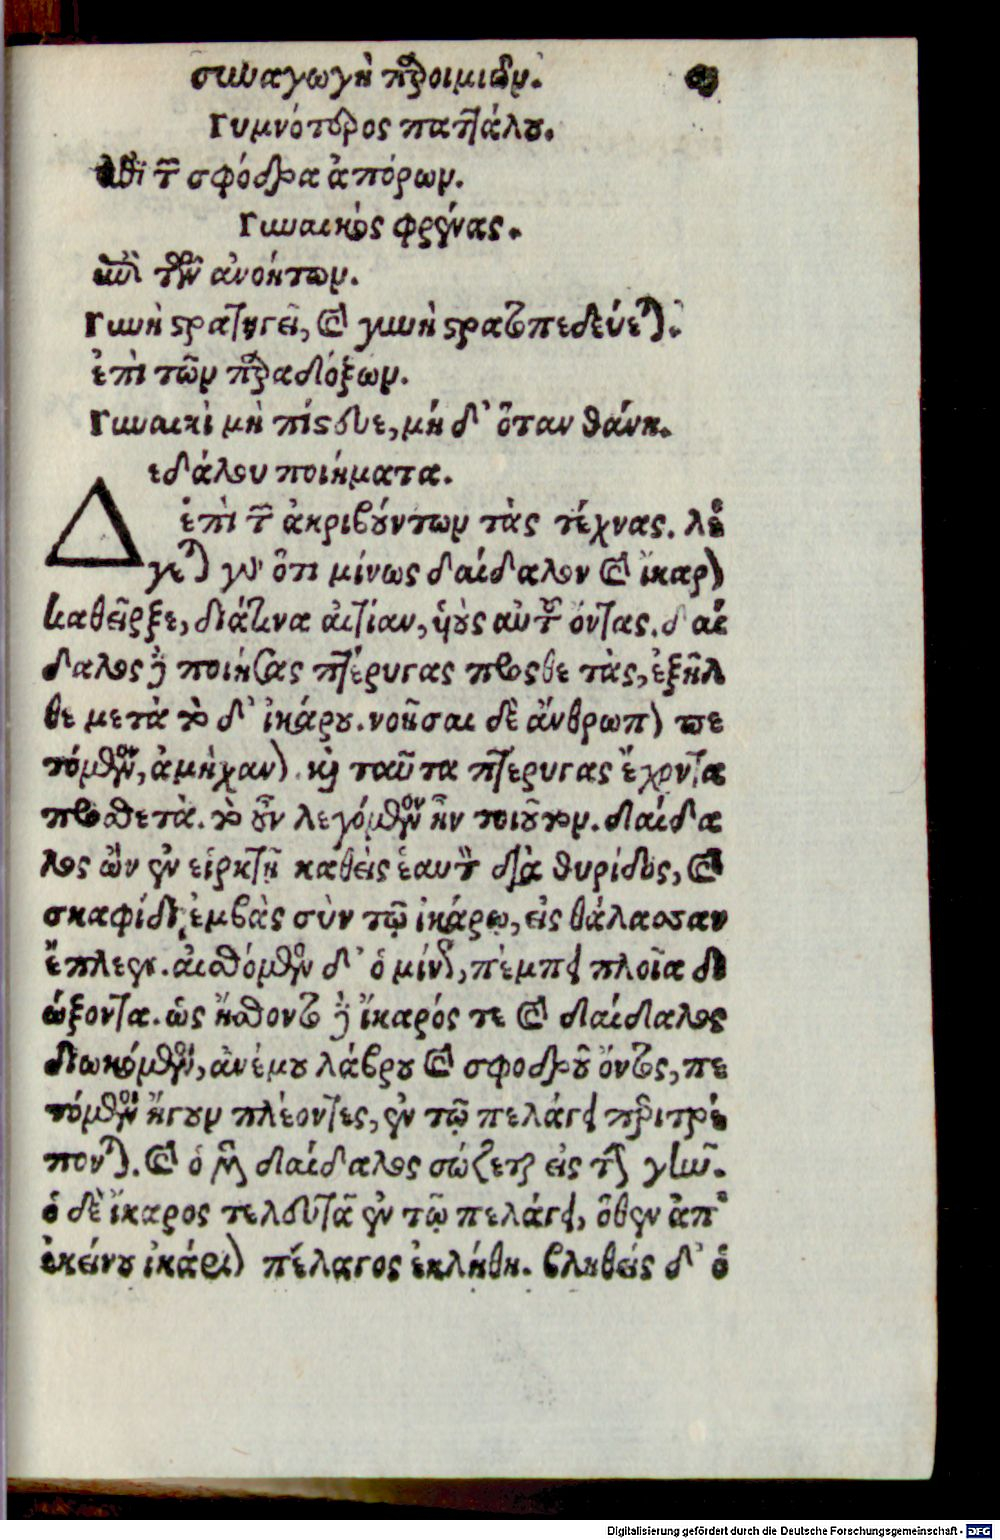 συναγωγὴ παροιμιῶν.
Γυμνότερος παττάλου.
ἐπὶ τῶν σφόδρα ἀπόρων.
Γυναικὸς φρένας.
ἐπὶ τῶν ἀνοήτων.
Γυνὴ στρατηγεῖ, καὶ γυνὴ στρατοπεδεύεται.
ἐπὶ τῶν παραδόξων.
Γυναικὶ μὴ πίστευε, μή δ' ὅταν θάνῃ.
Δεδάλου ποιήματα.
ἐπὶ τῶν ἀκριβούντων τὰς τέχνας. λέ
γεται γὰρ ὅτι μίνως δαίδαλον καὶ ἴκαρον
καθεῖρξε, διά τινα αἰτίαν, υἱοὺς αὐτοῦ ὄντας. δαί
δαλος δὲ ποιήσας πτέρυγας προσθετὰς, ἐξῆλ
θε μετὰ τοῦ δ' ἰκάρου. νοῆσαι δὲ ἄνθρωπον πε
τόμενον, ἀμήχανον. καὶ ταῦτα πτέρυγας ἔχοντα
προσθετὰ. τὸ οὖν λεγόμενον ἦν τοιοῦτον. δαίδα
λος ὢν ἐν εἱρκτῇ καθεὶς ἑαυτὸν διὰ θυρίδος, καὶ
σκαφίδι ἐμβὰς σὺν τῷ ἰκάρῳ, εἰς θάλασσαν
ἔπλεεν. αἰσθόμενος δ' ὁ μίνως, πέμπει πλοῖα δι
ώξοντα. ὡς ᾔσθοντο δὲ ἴκαρός τε καὶ δαίδαλος
διωκόμενοι, ἀνέμου λάβρου καὶ σφοδροῦ ὄντος, πε
τόμενοι ἤγουν πλέοντες, ἐν τῷ πελάγει περιτρέ
πονται. καὶ ὁ μὲν δαίδαλος σώζεται εἰς τὴν γῆν.
ὁ δὲ ἴκαρος τελευτᾷ ἐν τῷ πελάγει, ὅθεν ἀπ'
ἐκείνου ἰκάριον πέλαγος ἐκλήθη. βληθεὶς δ' ὁ
Digitalisierung gefördert durch die Deutsche Forschungsgemeinschaft - DFG